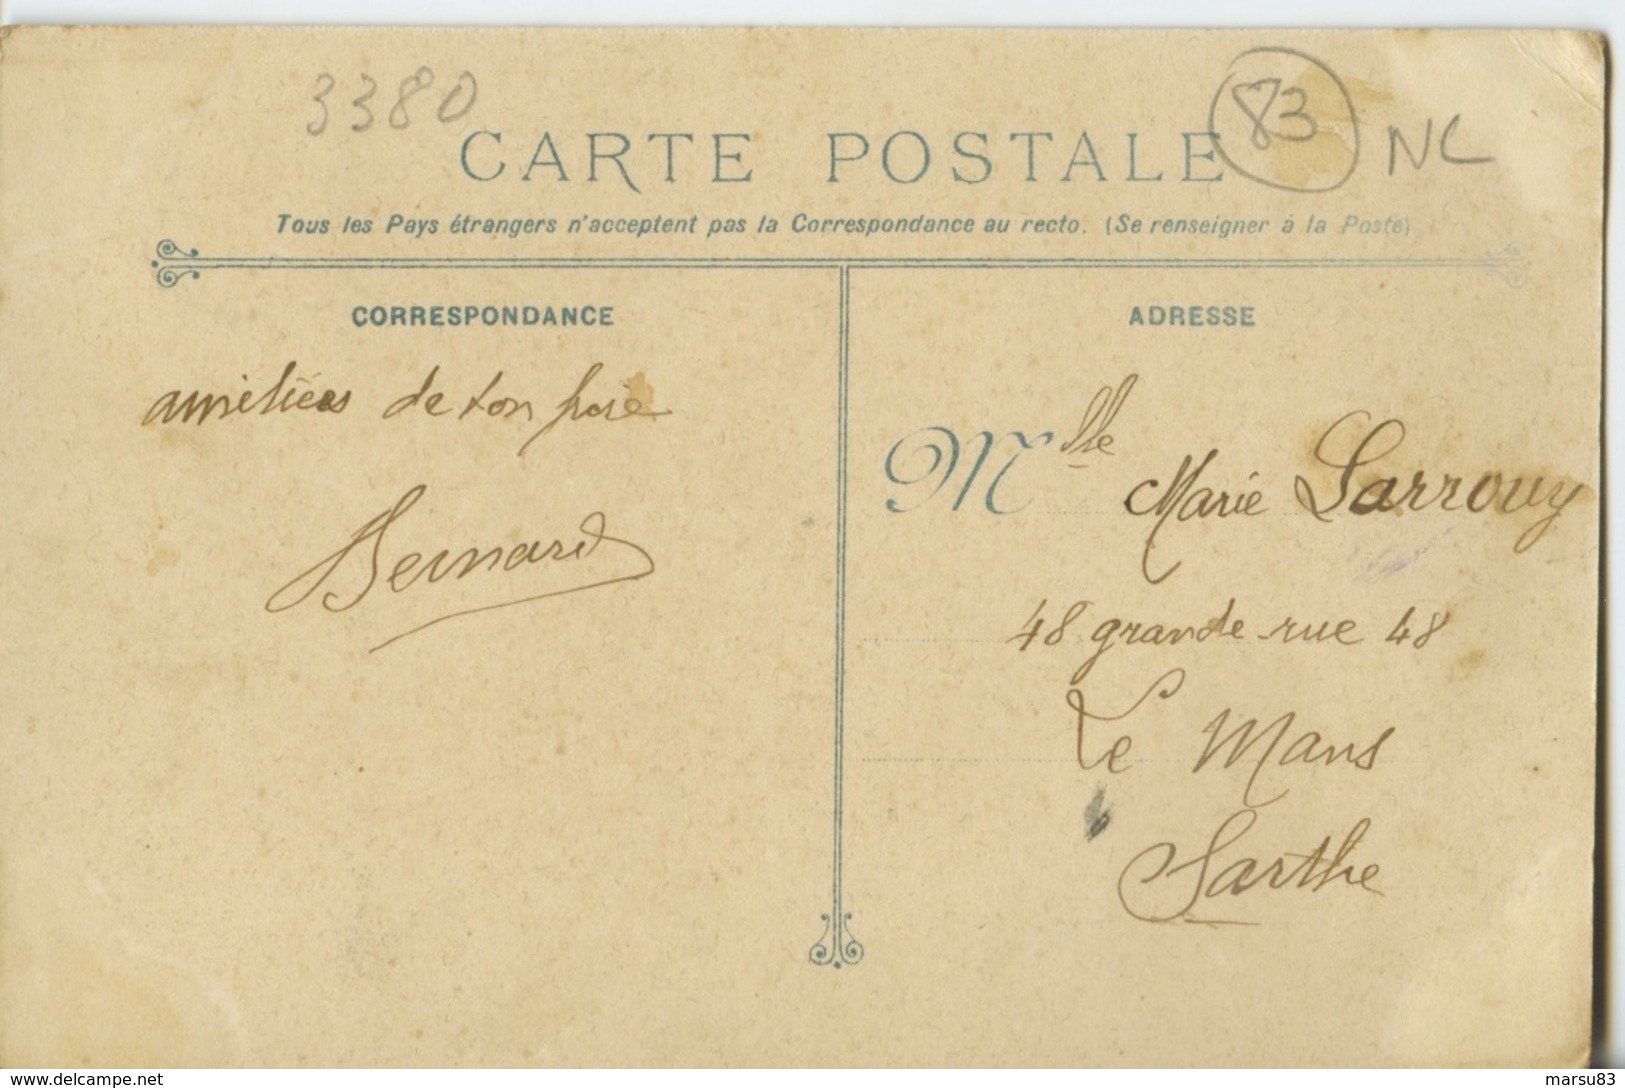 3380
83
NL
CARTE POSTALE
Tous les Pays étrangers n'acceptent pas la Correspondance au recto. (Se renseigner à la Poste)
CORRESPONDANCE
amitiées de ton frère
Bernard
ADRESSE
Mlle Marie Larrouy
48 grande-rue 48
Le Mans
Sarthe
www.delcampe.net
marsu83